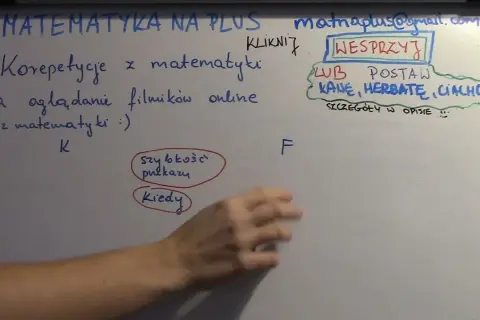 MATEMATYKA NA PLUS
matnaplus@gmail.com
KLIKNIJ
WESPRZYJ
Korepetycje z matematyki
LUB POSTAW
a oglądanie filmików online
KAWĘ, HERBATĘ, CIACHO
z matematyki :)
SZCZEGÓŁY W OPISIE
K
F
szybkość
przekazu
kiedy